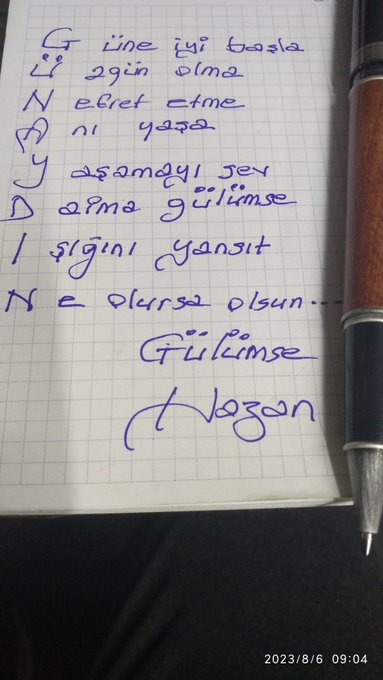 G üne iyi başla
Ü zgün olma
N efret etme
A nı yaşa
Y aşamayı sev
D aima gülümse
I şığını yansıt
N e olursa olsun...
Gülümse
Nazan
2023/8/6 09:04